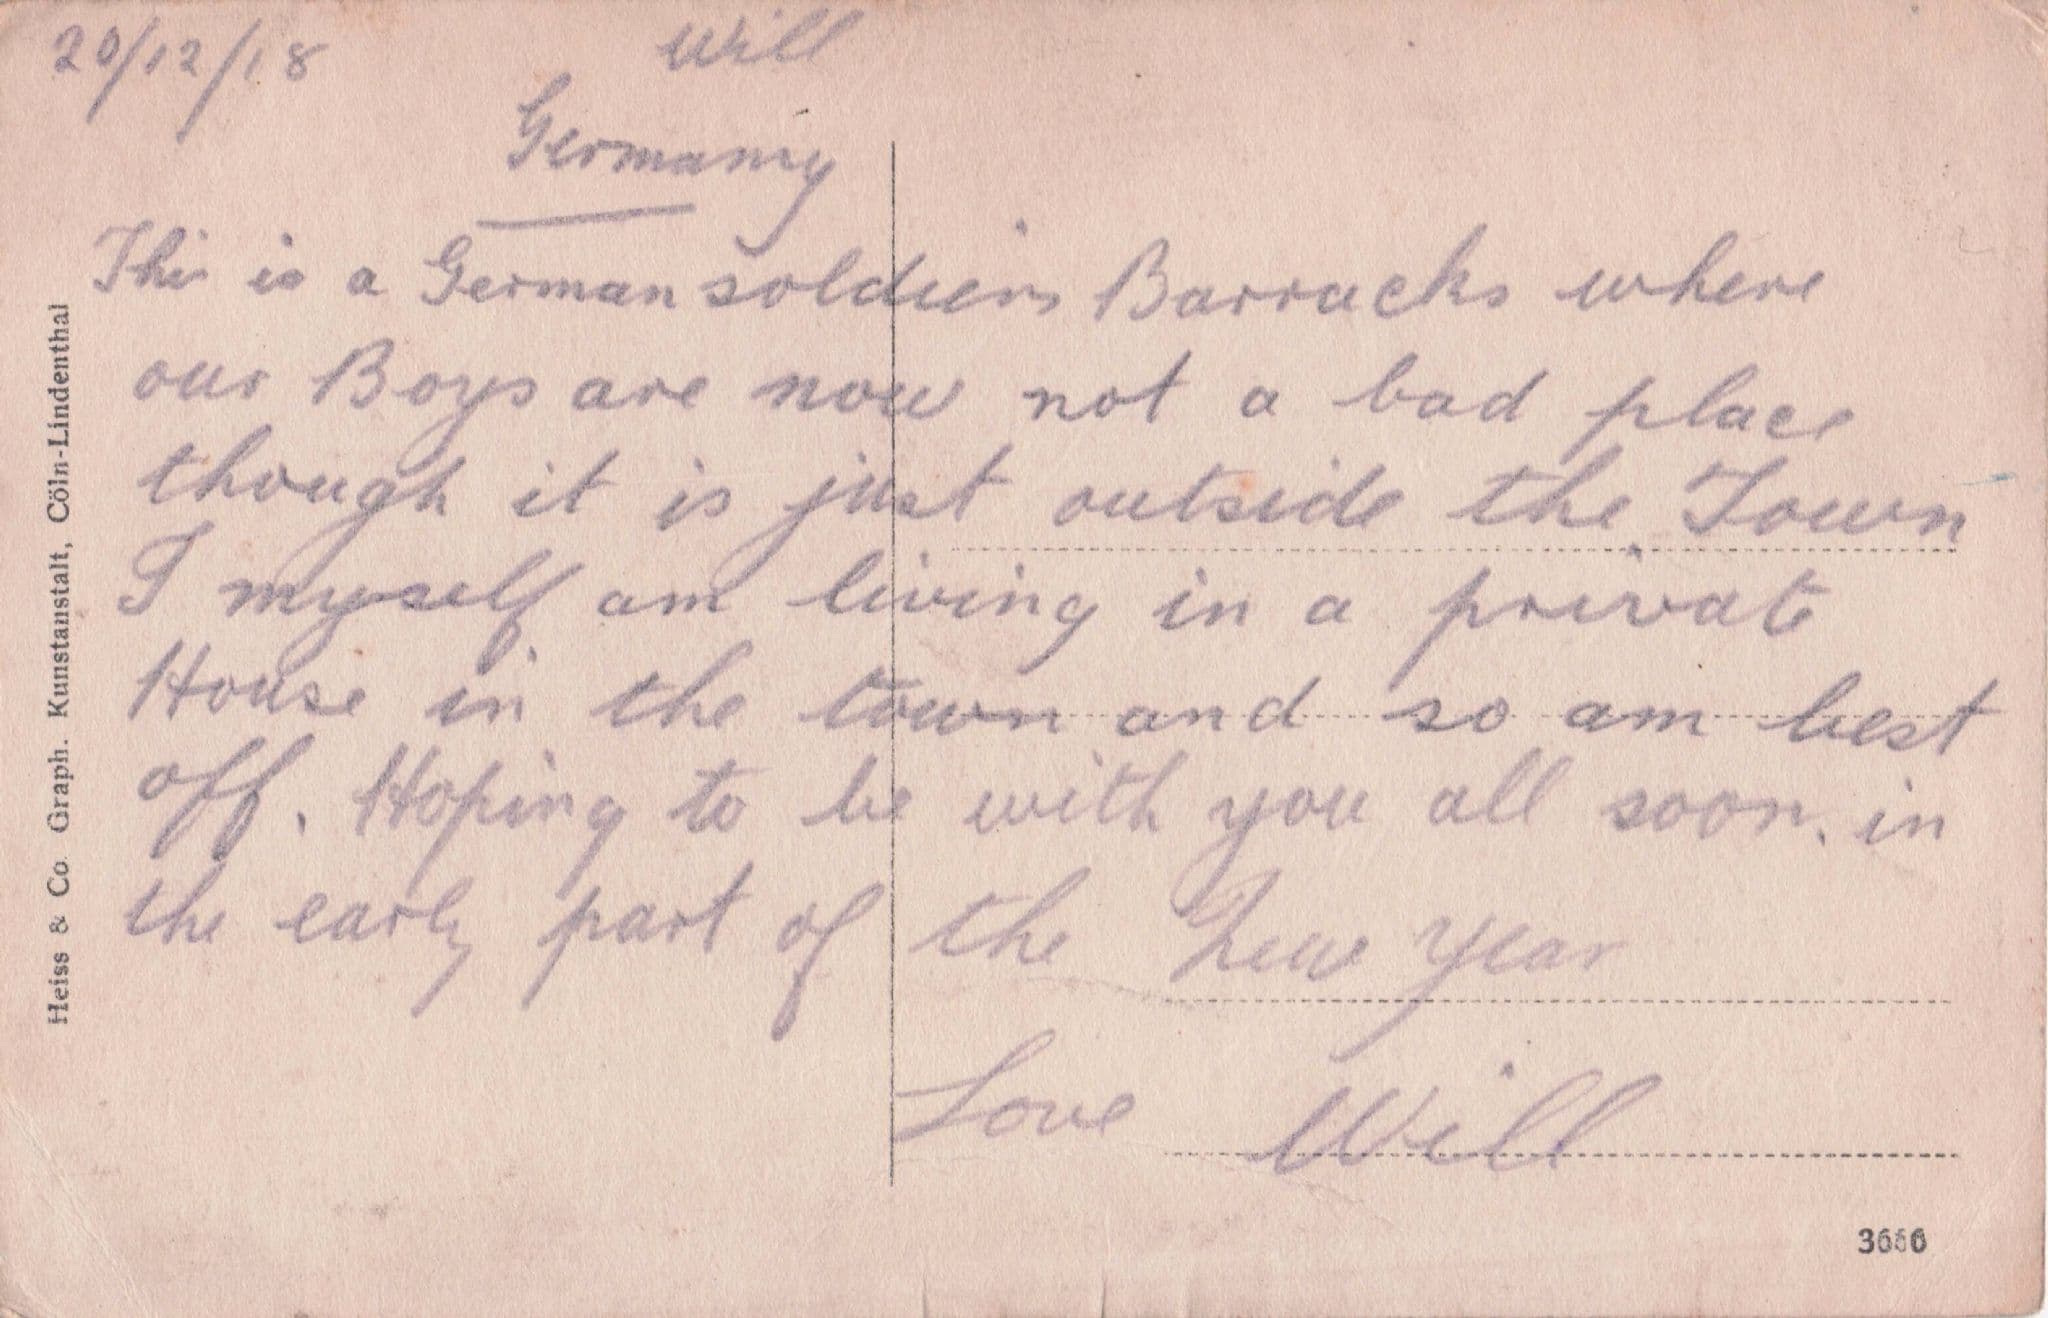 20/12/18
Will
Germany
This is a German soldiers Barracks where
our Boys are now not a bad place
though it is just outside the Town
I myself am living in a private
House in the town and so am best
off. Hoping to be with you all soon. in
the early part of the New Year
Love Will
Heiss & Co. Graph. Kunstanstalt, Cöln-Lindenthal
3666